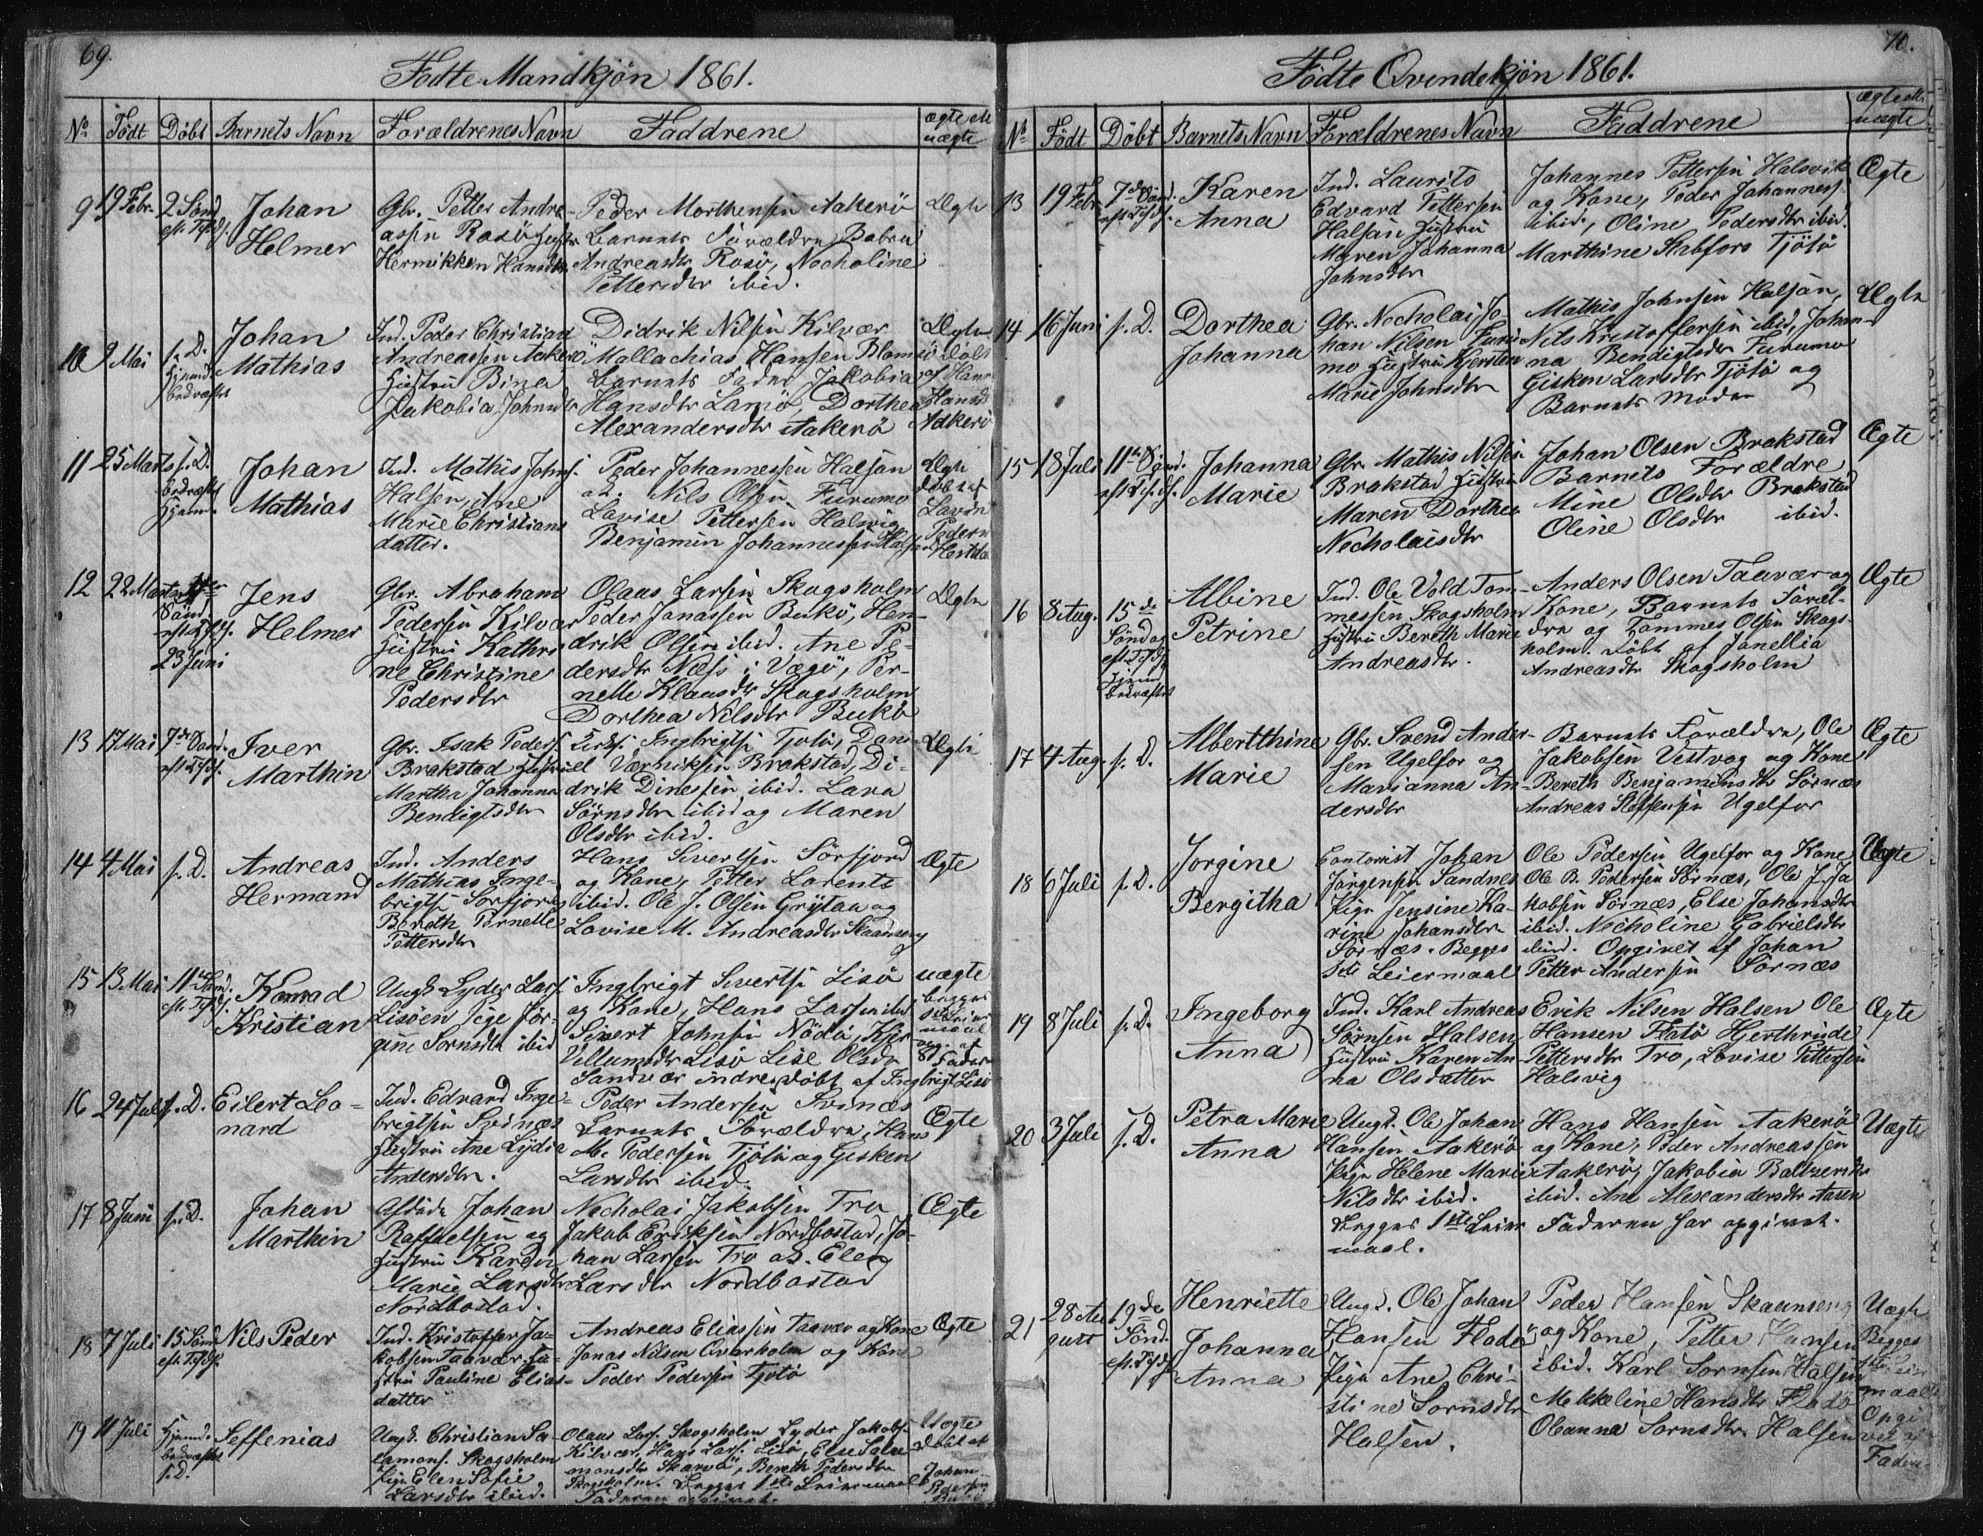 69.
Fødte Mandkjøn 1861.
No Født Døbt Barnets Navn Forældrenes Navn Faddrene ægte ell. uægte
9 19 Febr. 2 Sønd. eft.
Johan
Helmer
Gbr. Petter Andre-
assen Rosø Hustr
Hermikken Hansdtr
Peder Morthensen Aakerø
Barnets Forældre
Andreasdtr Rosø, Nocholine
Pettersdtr ibid.
Ægte
10 9 Mai s. D.
Hjemd.
bedræftet
Johan
Mathias
Ind. Peder Christian
Andreassen Aakerø
Hustru Bina
Jakobia Johnsdtr
Didrik Nilsen Kilvær
Mallachias Hansen Blomsø
Barnets Fader, Jakobia
Hansdtr Lamø, Dorthea
Alexandersdtr Aakerø
Ægte
Døbt
af Hans
Hansd
Aakerø
11 25 Marts s. D.
bedræftet
Hjemd.
Johan
Mathias
Ind. Mathis Johns.
Halsen, Ane
Marie Christians
datter.
Peder Johannessen Halsan
Nils Olsen Furumo
Lovise Pettersen Halsvig
Benjamin Johannessen Halsen
Ægte
døbt af
12 22 Marts
Sønd.
eft. Tfs.
23 Juni
Jens
Helmer
Gbr. Abraham
Pedersen Kilvær
Hustru Kathri
ne Christine
Pedersdtr
Olaus Larsen Skogsholm
Peder Jonassen Bukø, Hen-
drik Olsen ibid. Ane Pe-
dersdtr Næss i Vægø, Per-
nelle Klausdtr Skogsholm
Dorthea Nilsdtr Bukø
Ægte
13 17 Mai 7de Sønd.
Iver
Marthin
Gbr. Isak Peders.
Brakstad Hustru
Martha Johanna
Bendigtsdtr
Ingbrigts. Tjøtø, Dani-
elVærniksen Brakstad, Di-
drik Dinessen ibid. Lava
Sørnsdtr ibid og Maren
Olsdtr ibid.
Ægte
14 4 Mai s. D.
Andreas
Hermand
Ind. Anders
Mathias Inge-
brigts. Sørfjord
Bereth Pernelle
Pettersdtr
Hans Sivertsen Sørfjord
og Kone, Petter Lorents
ibid. Ole J. Olsen Grytaa og
Lovise M. Andreasdtr Skaanseng
Ægte
15 13 Mai 11te Sønd.
Konrad
Kristian
Ungk. Lyder Lars.
Lisøen Pige Jør-
gine Sørnsdtr ibid
Ingbrigt Sivertsn Lisø
og Kone, Hans Larsen ibid
Sivert Johnsen Nødø,
Villumsdtr Lisø Lise Olsdr
Sandvær indre døbt af Ingbrigt Lisø
uægte
begges
maal
16 24 Juli s. D.
Eilert Leo-
nard
Ind. Edvard Inge-
brigtsen Svinæs
Hustru Ane Lydia
Andersdtr.
Peder Andersen Svinæs
Barnets Forældre, Hans
M. Pedersen Tjøtø og Gisken
Larsdtr ibid.
Ægte
17 8 Juni s. D.
Johan
Marthin
Johan
Rafaelsen og
Hustru Karen
Marie Larsdtr
Nordbostad.
Nocholai Jakobsen Tro
Jakob Eriksen Nordbostad, Jo-
han Larsen Tro Elen
Larsdtr Nordbostad
Ægte
18 7 Juli 15 Sønd
eft. Tfsdf.
Nils Peder
Ind. Kristoffer Ja-
kobsen Taavær Hu-
stru Pauline Elias-
datter
Andreas Eliassen Taavær og Kone
Jonas Nilsen Qvarholm og Kone
Peder Pedersen Tjøtø
Ægte
19 11 Juli Hjemd.
bedræftet
s. D.
Seffenias
Ungk. Christian Sa-
lamons. Skogsholm
Pige Elen Sofie
Larsdtr ibid.
Olaus Lars. Skogsholm Lyder Jakobs.
Kilvær, Hans Lars. Lisø, Else Sala-
monsdtr Skarvø, Bereth Pedersdtr
Skogsholm. Begges 1ste Leiermaal
Faderen opgivet.
Uægte
Døbt af
Johan
Pedersen
70.
Fødte Qvindekjøn 1861.
No Født Døbt Barnets Navn Forældrenes Navn Faddrene ægte ell. uægte
13 19 Febr. 7de Sønd.
eft. Tfsdf.
Karen
Anna
Ind. Laurits
Edvard Pettersen
Halsan Hustru
Maren Johanna
Johnsdtr
Johannes Pettersen Halsvik
og Kone, Peder Johanness.
ibid, Oline Pedersdtr ibid.
Marthine Stabfors Tjøtø
Ægte
14 16 Juni s. D.
Dorthea
Johanna
Gbr. Nocholai Jo-
han Nilsen Furu-
mo Hustru Kjersten
Marie Johnsdtr
Mathis Johnsen Halsan,
Nils Kristoffersen ibid, Johan-
na Bendigtsdr Furumo
Gisken Larsdtr Tjøtø og
Barnets Moder
Ægte
15 18 Juli 11te Sønd.
eft. Tfsdf.
Johanna
Marie
Gbr. Mathis Nilsen
Brakstad Hustru
Maren Dorthea
Nocholaisdtr
Johan Olsen Brakstad
Barnets Forældre
Mine Olsdtr Brakstad
Oline Olsdtr ibid.
Ægte
16 8 Aug. 15de
Søndag
eft. Tfsdf.
Hjemd.
bedræftet
Albine
Petrine
Ind. Ole Vold Tom-
messen Skogsholm
Hustru Bereth Marie
Andreasdtr.
Anders Olsen Taavær og
Kone, Barnets Foræl-
dre og Tommes Olsen Skogs-
holm. Døbt af Janellia
Andreasdtr Skogsholm
Ægte
17 4 Aug. s. D.
Albertthine
Marie
Gbr. Svend Ander-
sen Ugelfor og
Marianna An-
dersdtr
Barnets Forældre, Ole
Jakobsen Vestvog og Kone
Bereth Benjaminsdtr Sørnæs
Andreas Steffensen Ugelfor
Ægte
18 6 Juli s. D.
Jorgine
Bergitha
Contorist Johan
Jørgensen Sandnes
Pige Jensine Ka-
rine Johansdtr
Sørnæs. Begges
Leiermaal
Ole Pedersen Ugelfor og Kone
Ole B. Pedersen Sørnæs, Ole J. Ja
kobsen Sørnæs, Else Johansdtr
ibid. Nocholine Gabrielsdtr
ibid. Opgivet af Johan
Petter Andersen Sørnæs
Uægte
19 8 Juli s. D.
Ingeborg
Anna
Ind. Karl Andreas
Sørnsen Halsen,
Hustru Karen An-
na Olsdatter
Erik Nilsen Halsen Ole
Hansen Flatø Hjerthride
Pettersdtr Tro, Lovise Pettersen
Halsvig
Ægte
20 3 Juli s. D.
Petra Marie
Anna
Ungk. Ole Johan
Hansen Aakerø
Pige Helene Marie
Nilsdtr ibid.
Begges 1ste Leier
maal.
Hans Hansen Aakerø
og Kone, Peder Andreassen
Aakerø, Jakobia Baltzersdtr
ibid. Ane Alexandersdtr Aasen
Faderen har opgivet.
Uægte
21 28 Au
gust
19de
Sønd.
eft. Tfsdf.
Henriette
Johanna
Anna
Ungk. Ole Johan
Hansen Flode
Pige Ane Chri-
stine Sørnsdtr
Halsen.
Peder Hansen Skaanseng
og Kone, Petter Hansen
ibid. Karl Sørnsen Halsen
Mekkeline Hansdtr Flode
Oleanna Sørnsdtr. Halsen
Uægte
Begges
1ste Leier
maal
Opgi
vet af
Faderen